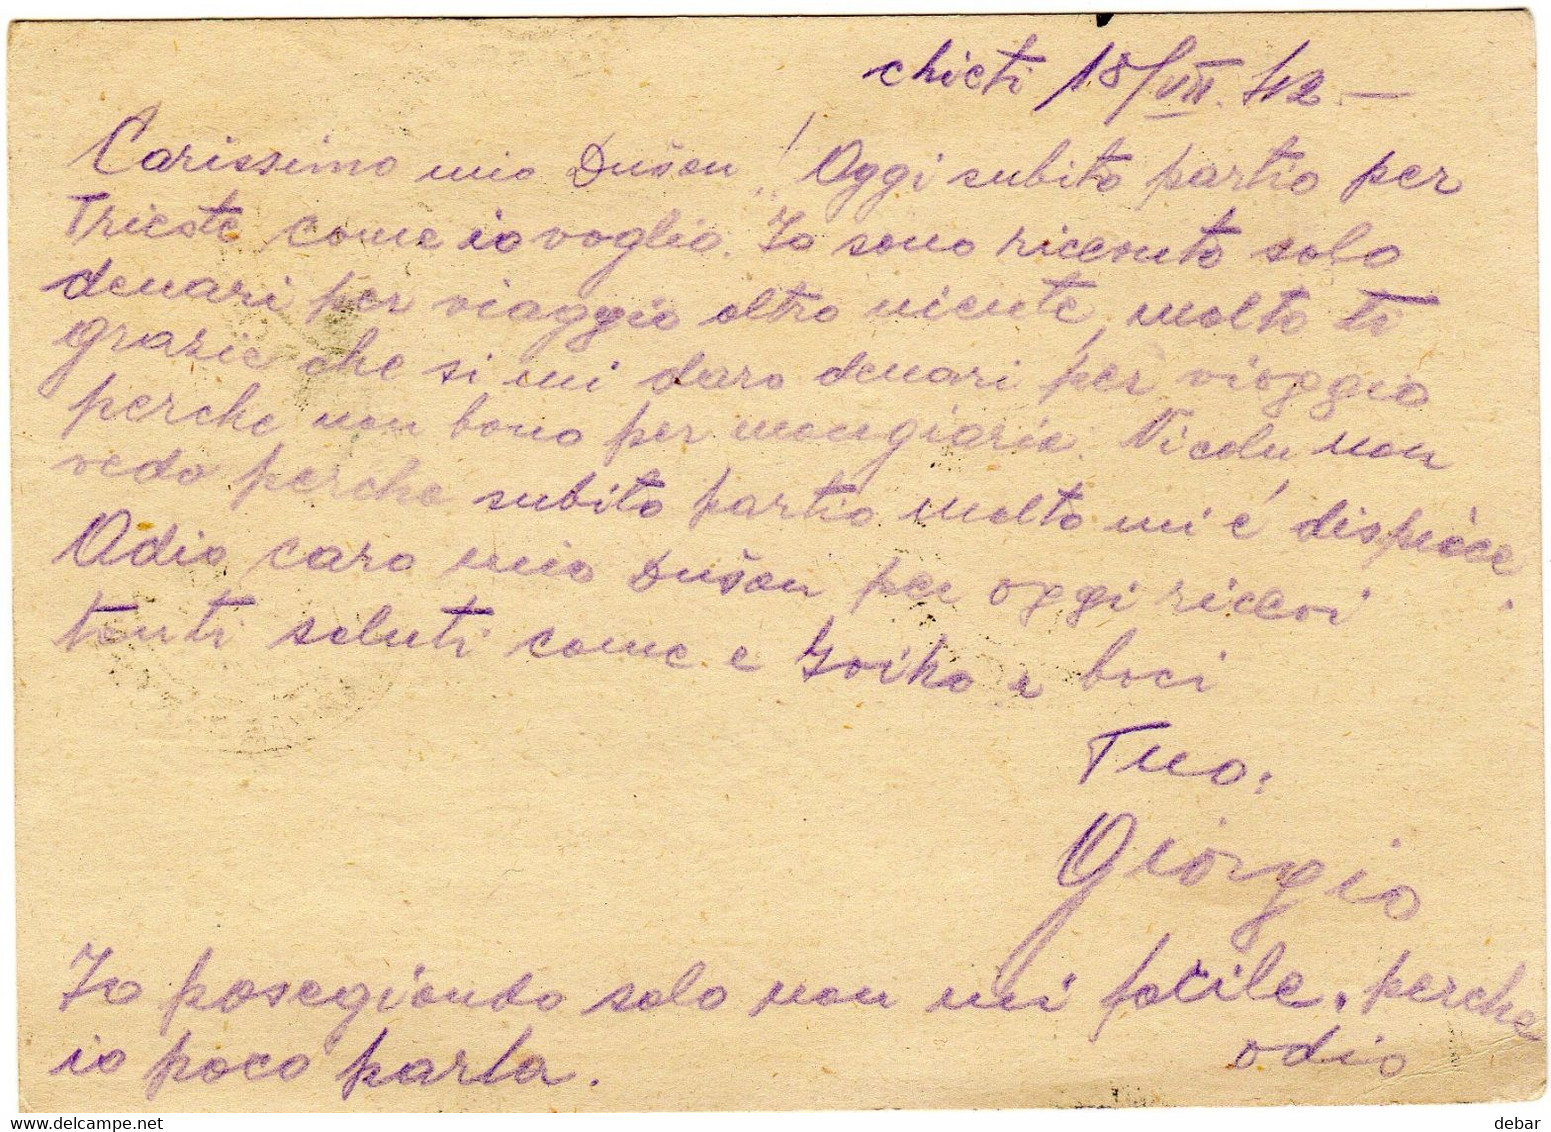 Chieti 18/VIII. 42.—
Carissimo mio Dušan! Oggi subito partio per
Trieste come io voglio. Io sono riccevuto solo
denari per viaggio oltro niente, molto ti
grazie che si mi daro denari per viaggio
perche non bono per mongiaria. Nicolu non
vedo perche subito partio molto mi é dispiace.
Adio caro mio Dušan per oggi riccevi
tanti saluti come e Goiko e boci
Tuo:
Giorgio
Io posegiondo solo non mi facile, perche
io poco parla.
adio
debar